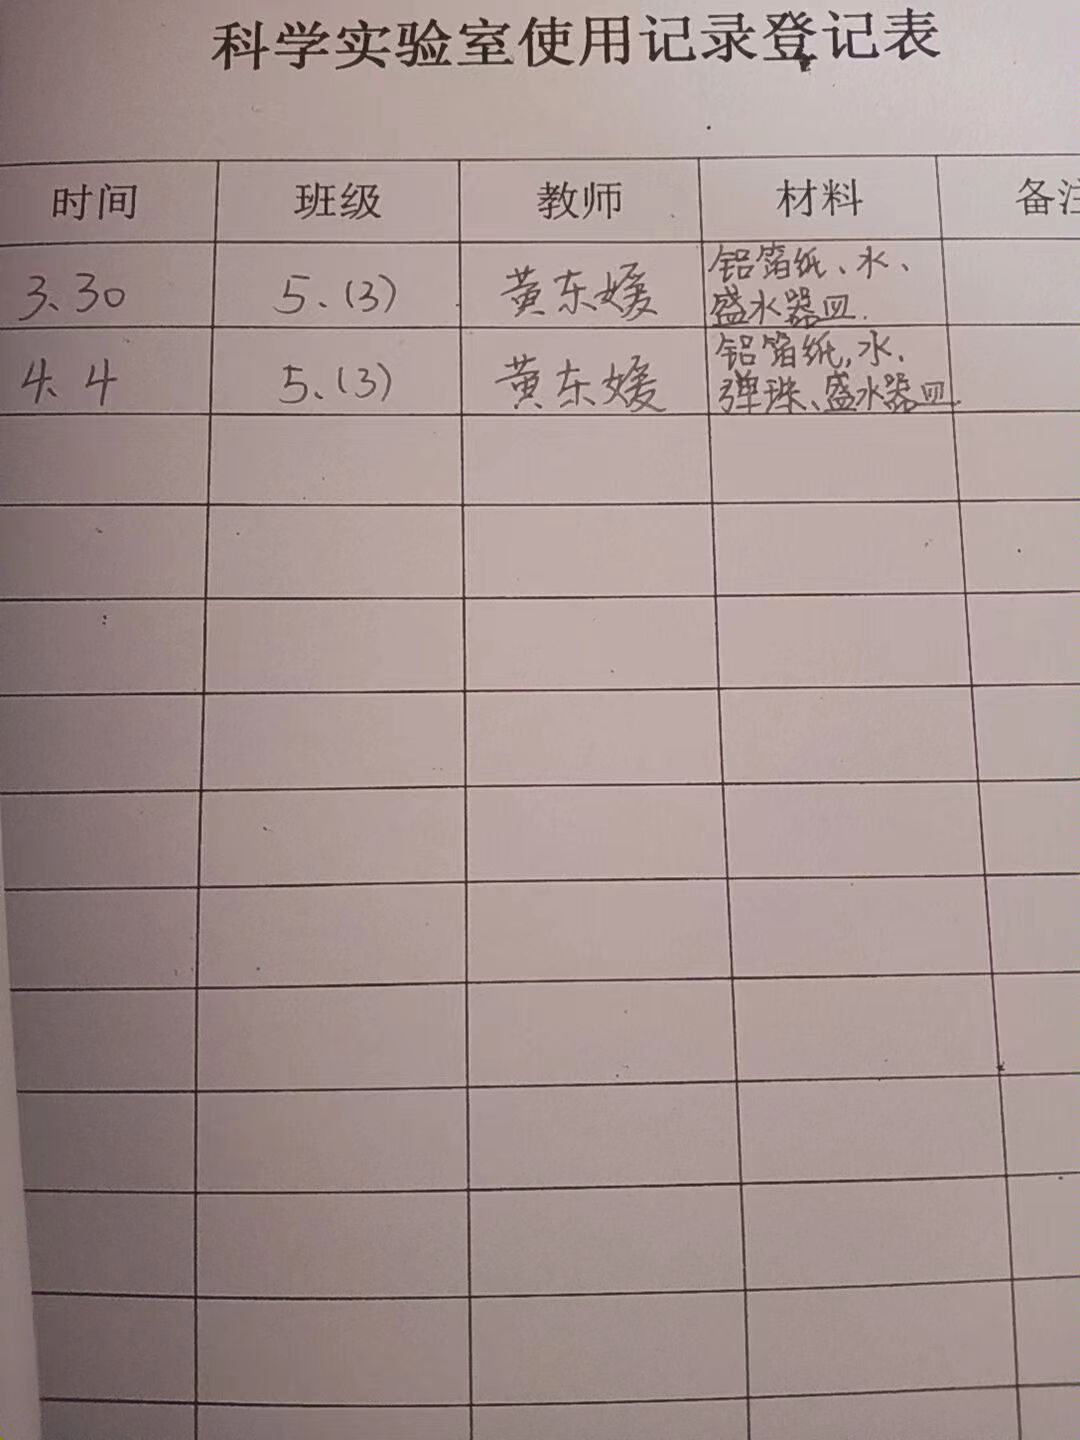 科学实验室使用记录登记表
时间 班级 教师 材料 备注
3.30 5.(3) 黄东媛 铝箔纸、水、
盛水器皿.
4.4 5.(3) 黄东媛 铝箔纸,水.
弹珠、盛水器皿.